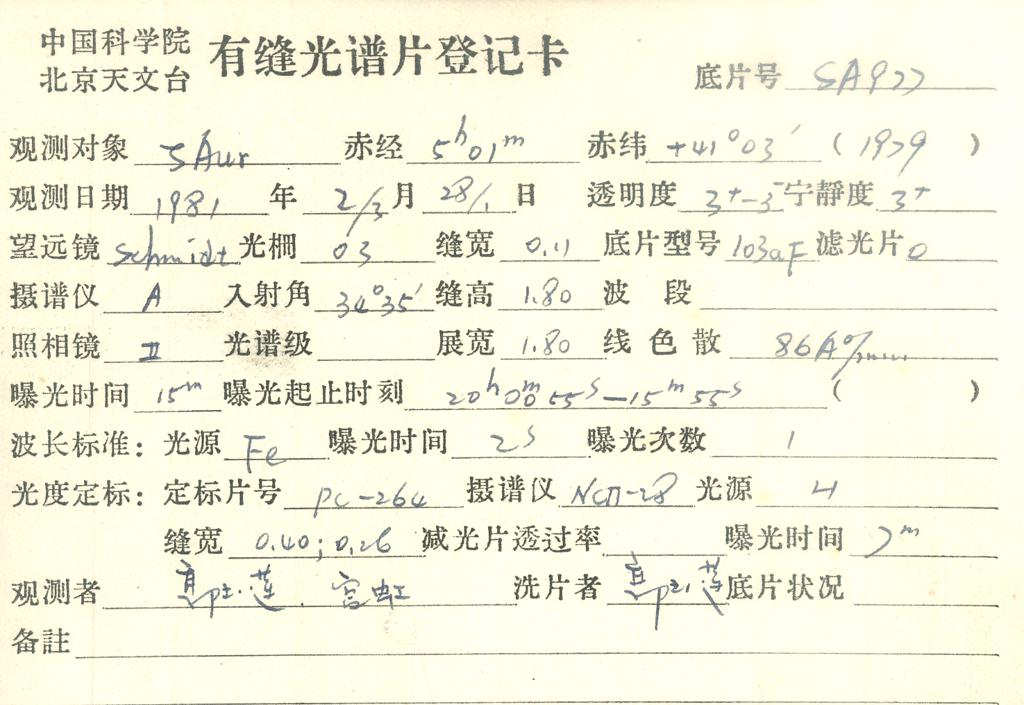 中国科学院
北京天文台
有缝光谱片登记卡
底片号 SA977
观测对象 ζAur 赤经 5h01m 赤纬 +41°03′ (1979)
观测日期 1981 年 2/3 月 28/1 日 透明度 3+-5 宁静度 3+
望远镜 Schmidt 光栅 03 缝宽 0.11 底片型号 103aF 滤光片 0
摄谱仪 A 入射角 34°35′ 缝高 1.80 波段
照相镜 II 光谱级 展宽 1.80 线色散 86A°/mm
曝光时间 15m 曝光起止时刻 20h00m55s—15m55s ( )
波长标准: 光源 Fe 曝光时间 2s 曝光次数 1
光度定标: 定标片号 PC-264 摄谱仪 光源
缝宽 0.40; 0.26 减光片透过率 曝光时间 7m
观测者 宫虹 洗片者 底片状况
备註